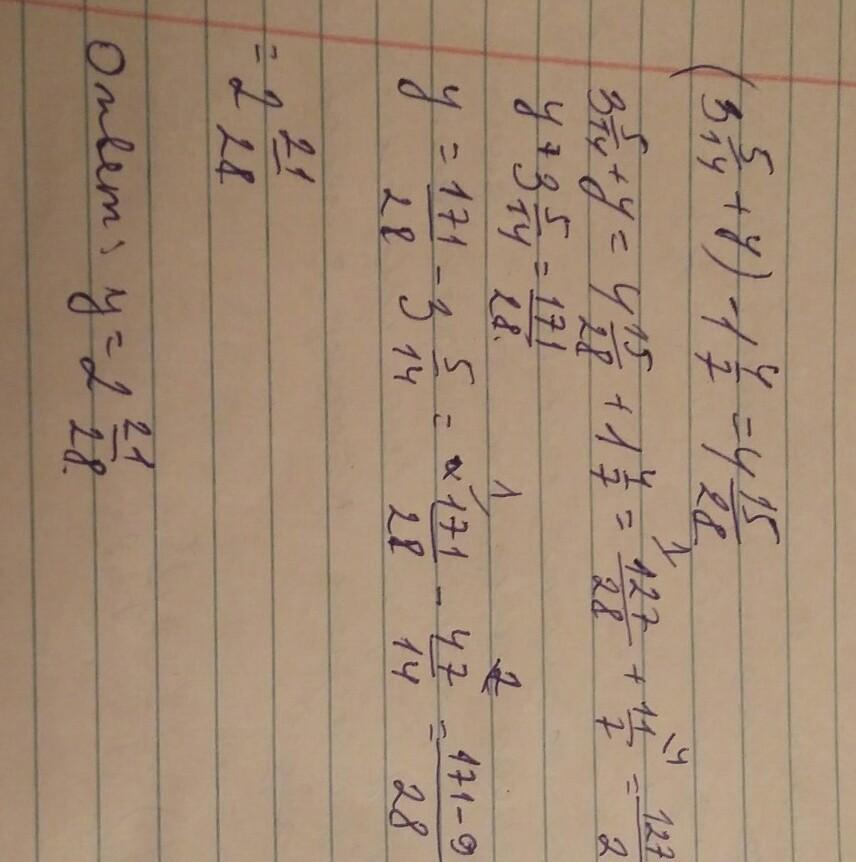 (3 5/14 + y) - 1 4/7 = 4 15/28
3 5/14 + y = 4 15/28 + 1 4/7 = 127/28 + 11/7 = 127/2
y + 3 5/14 = 171/28.
y = 171/28 - 3 5/14 = 171/28 - 47/14 = 171-9/28
= 2 21/28
Ответ: y = 2 21/28.